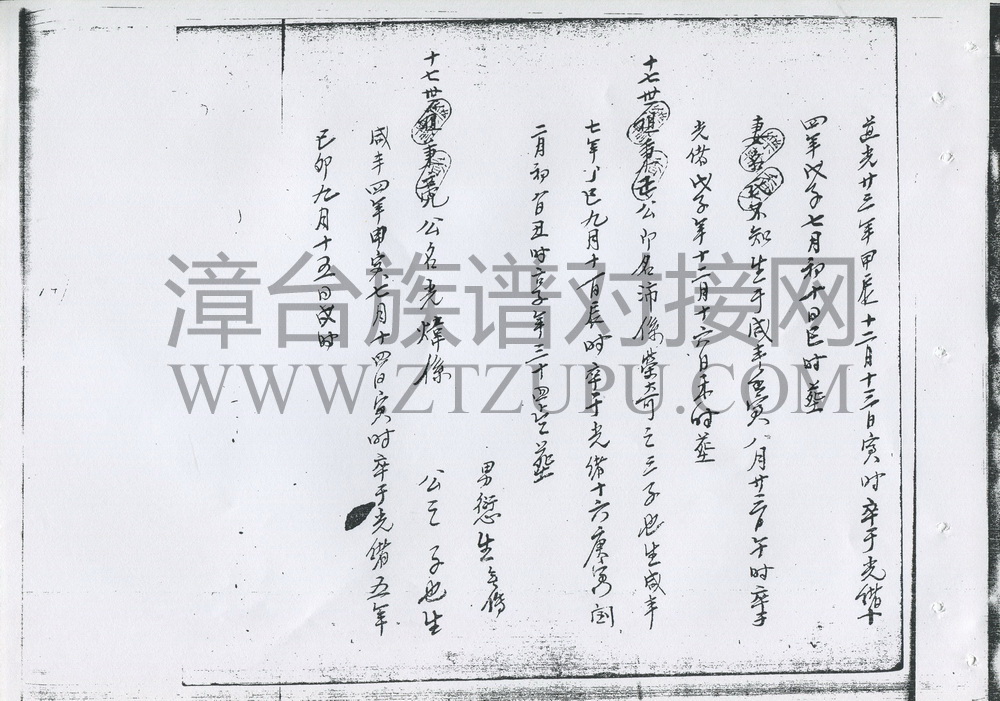 道光廿三年甲辰十二月十三日寅时卒于光绪十
四年戊子七月初十日巳时葬
妻 氏不知生于咸丰壬寅八月廿二日午时卒于
光绪戊子年十二月十六日未时葬
十七世祖 公 名沛係荣 之三子也生咸丰
七年丁巳九月十一日辰时卒于光绪十六庚寅闰
二月初 日丑时享年三十四 葬
男 生
十七世祖秉 公名光炜係
公之子也生
咸丰四年甲寅七月十四日寅时卒于光绪五年
己卯九月十五日 时
漳台族谱对接网
WWW.ZTZUPU.COM